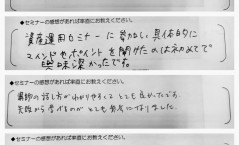 ●セミナーの感想があれば率直にお教えください。
資産運用セミナーに参加し、具体的に
マインドやポイントを聞けたのは初めてで
興味深かったです。
●セミナーの感想があれば率直にお教えください。
講師の話し方がわかりやすく とても良かったです。
失敗から学べるのが とても勉強になりました。
●セミナーの感想があれば率直にお教えください。